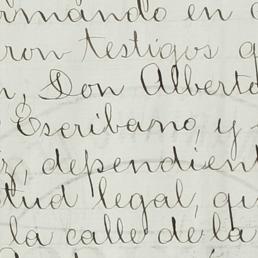 rmando en
ron testigos q
n, Don Alberto
Escribano, y
z, dependient
tud legal, qu
la calle de la